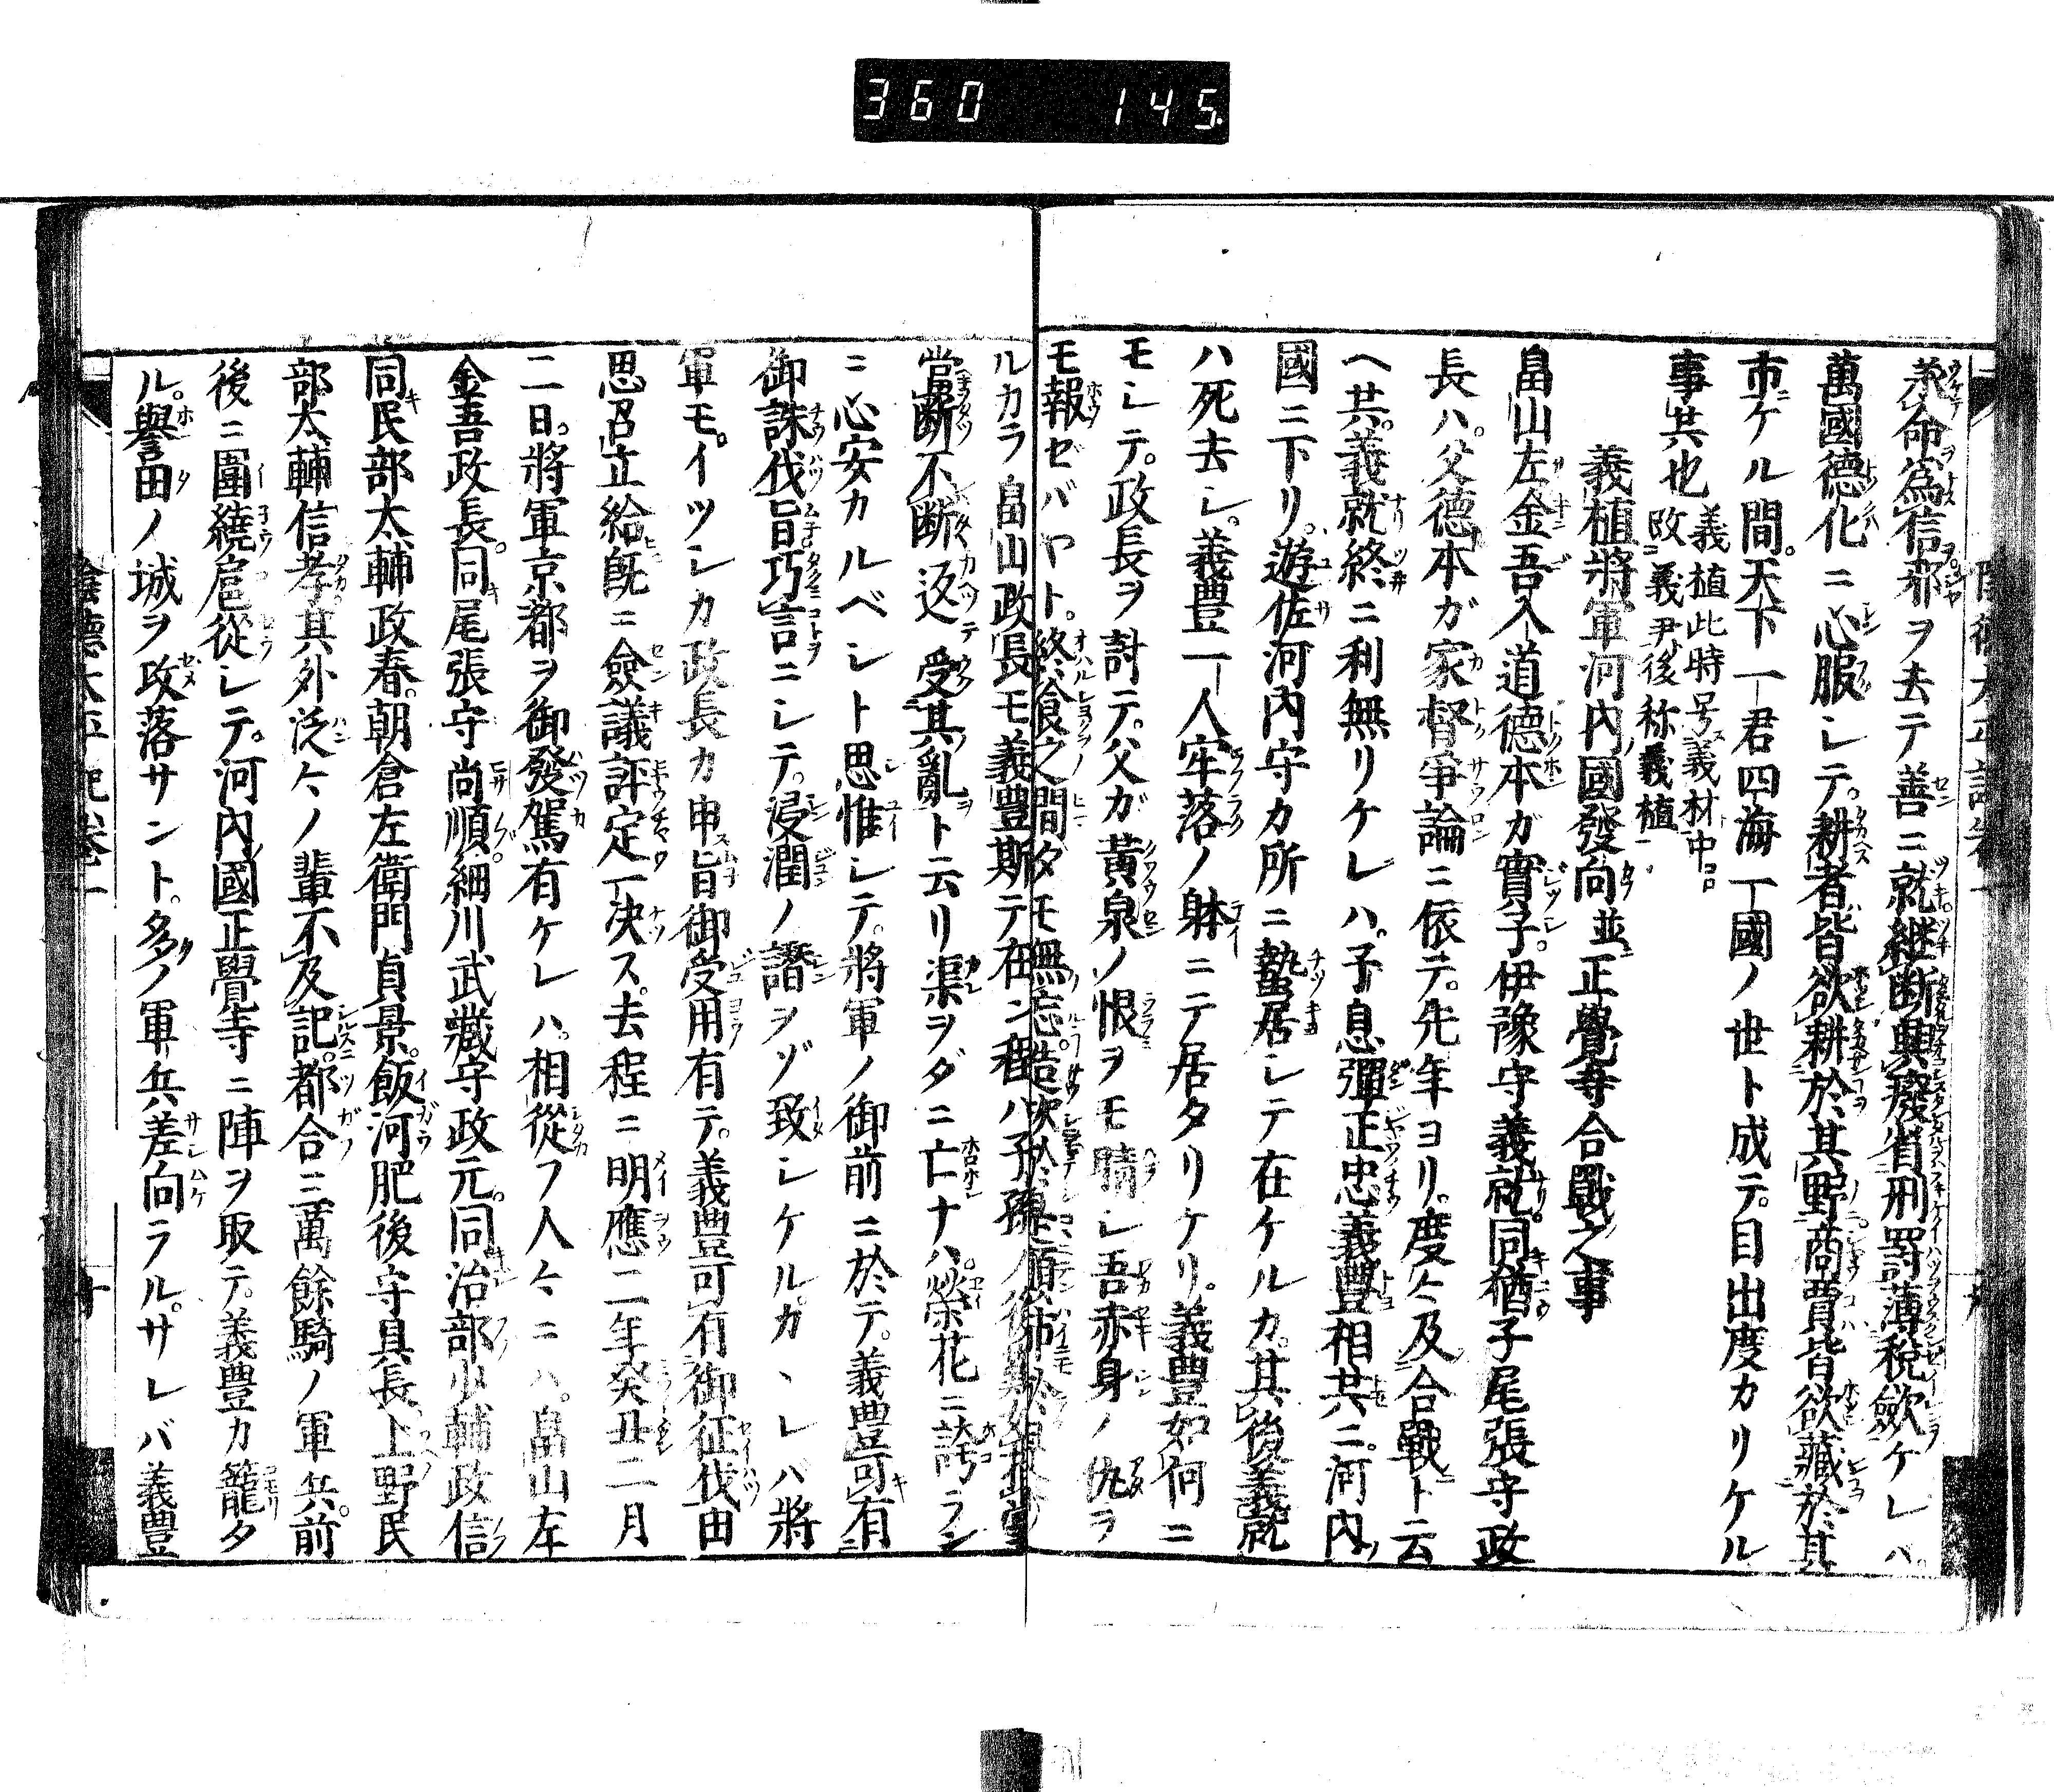 360 145.
承命為信邪ヲ去テ善ニ就継断興廢省刑罰薄税斂ケレハ
萬國德化ニ心服シテ耕者皆欲耕於其野商賈皆欲藏於其
市ケル間天下一君四海一國ノ世ト成テ目出度カリケル
事共也
義植此時号義材中コロ
改義尹後称義植
義植將軍河内國發向並正覺寺合戰之事
畠山左金吾入道德本ガ實子伊豫守義就同猶子尾張守政
長ハ父德本ガ家督爭論ニ依テ先年ヨリ度々及合戰ト云
ヘ共義就終ニ利無リケレハ子息彈正忠義豐相共ニ河内
國ニ下リ遊佐河内守カ所ニ蟄居シテ在ケルカ其後義就
ハ死去シ義豐一人牢落ノ躰ニテ居タリケリ義豐如何ニ
モシテ政長ヲ討テ父ガ黄泉ノ恨ヲモ晴シ吾赤身ノ仇ヲ
モ報ゼバヤト終食之間タモ無忘造次於是顛沛於是
ルカラ畠山政長モ義豐斯テ在ン程ハ子孫ノ後
當断不断返受其亂ト云リ渠ヲダニ亡ナハ榮花ニ誇ラン
ニ心安カルベシト思惟シテ將軍ノ御前ニ於テ義豐可有
御誅伐旨巧言ニシテ浸潤ノ譖ヲゾ致シケルカヽレバ將
軍モイツシカ政長カ申旨御受用有テ義豐可有御征伐由
思召立給既ニ僉議評定一决ス去程ニ明應二年癸丑二月
二日將軍京都ヲ御發駕有ケレハ相從フ人々ニハ畠山左
金吾政長同尾張守尚順細川武藏守政元同治部少輔政信
同民部太輔政春朝倉左衛門貞景飯河肥後守具長上野民
部太輔信孝其外泛々ノ輩不及記都合三萬餘騎ノ軍兵前
後ニ圍繞扈從シテ河内國正覺寺ニ陣ヲ取テ義豐カ籠タ
ル譽田ノ城ヲ攻落サント多ノ軍兵差向ラルサレバ義豐
陰德太平記卷一